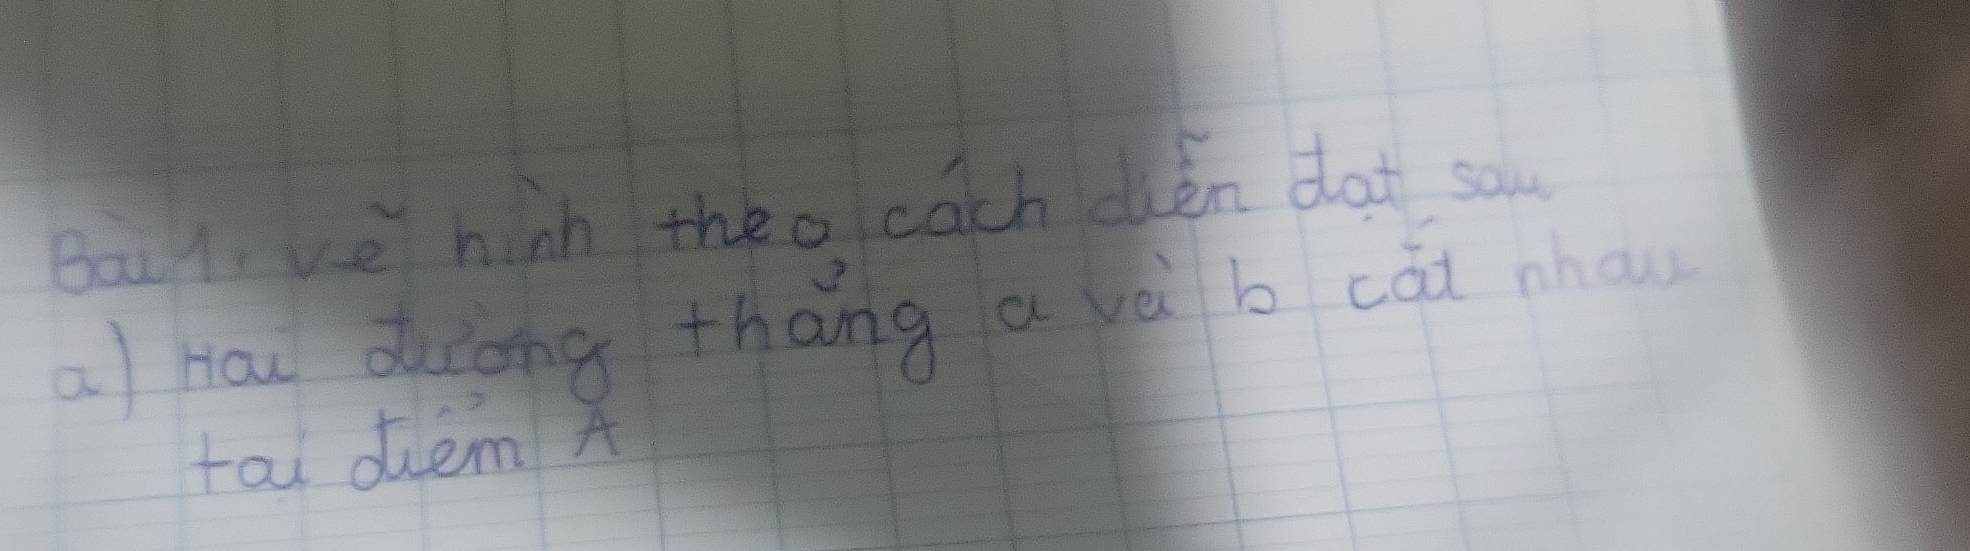 Bài 1. vẽ hình theo cách diễn đạt sau
a) Hai đường thẳng a và b cắt nhau
tại điểm A